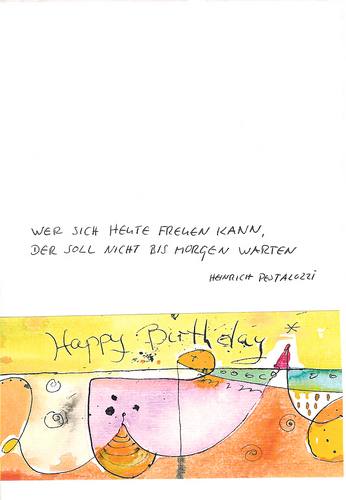 WER SICH HEUTE FREUEN KANN,
DER SOLL NICHT BIS MORGEN WARTEN
HEINRICH PESTALOZZI
Happy Birthday